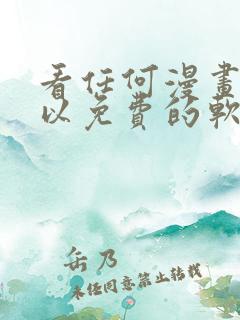 看任何漫畫
以免費的軟
岳乃
未任同意禁止转载